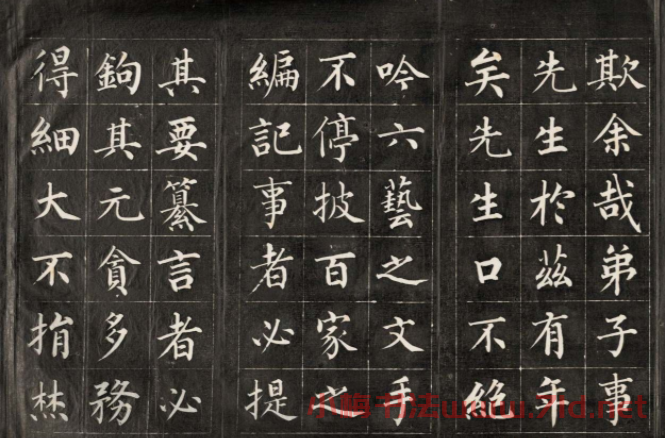 欺余哉弟子事
先生於茲有年
矣先生口不絕
吟六藝之文手
不停披百家之
編記事者必提
其要纂言者必
鉤其元貪多務
得細大不捐焚